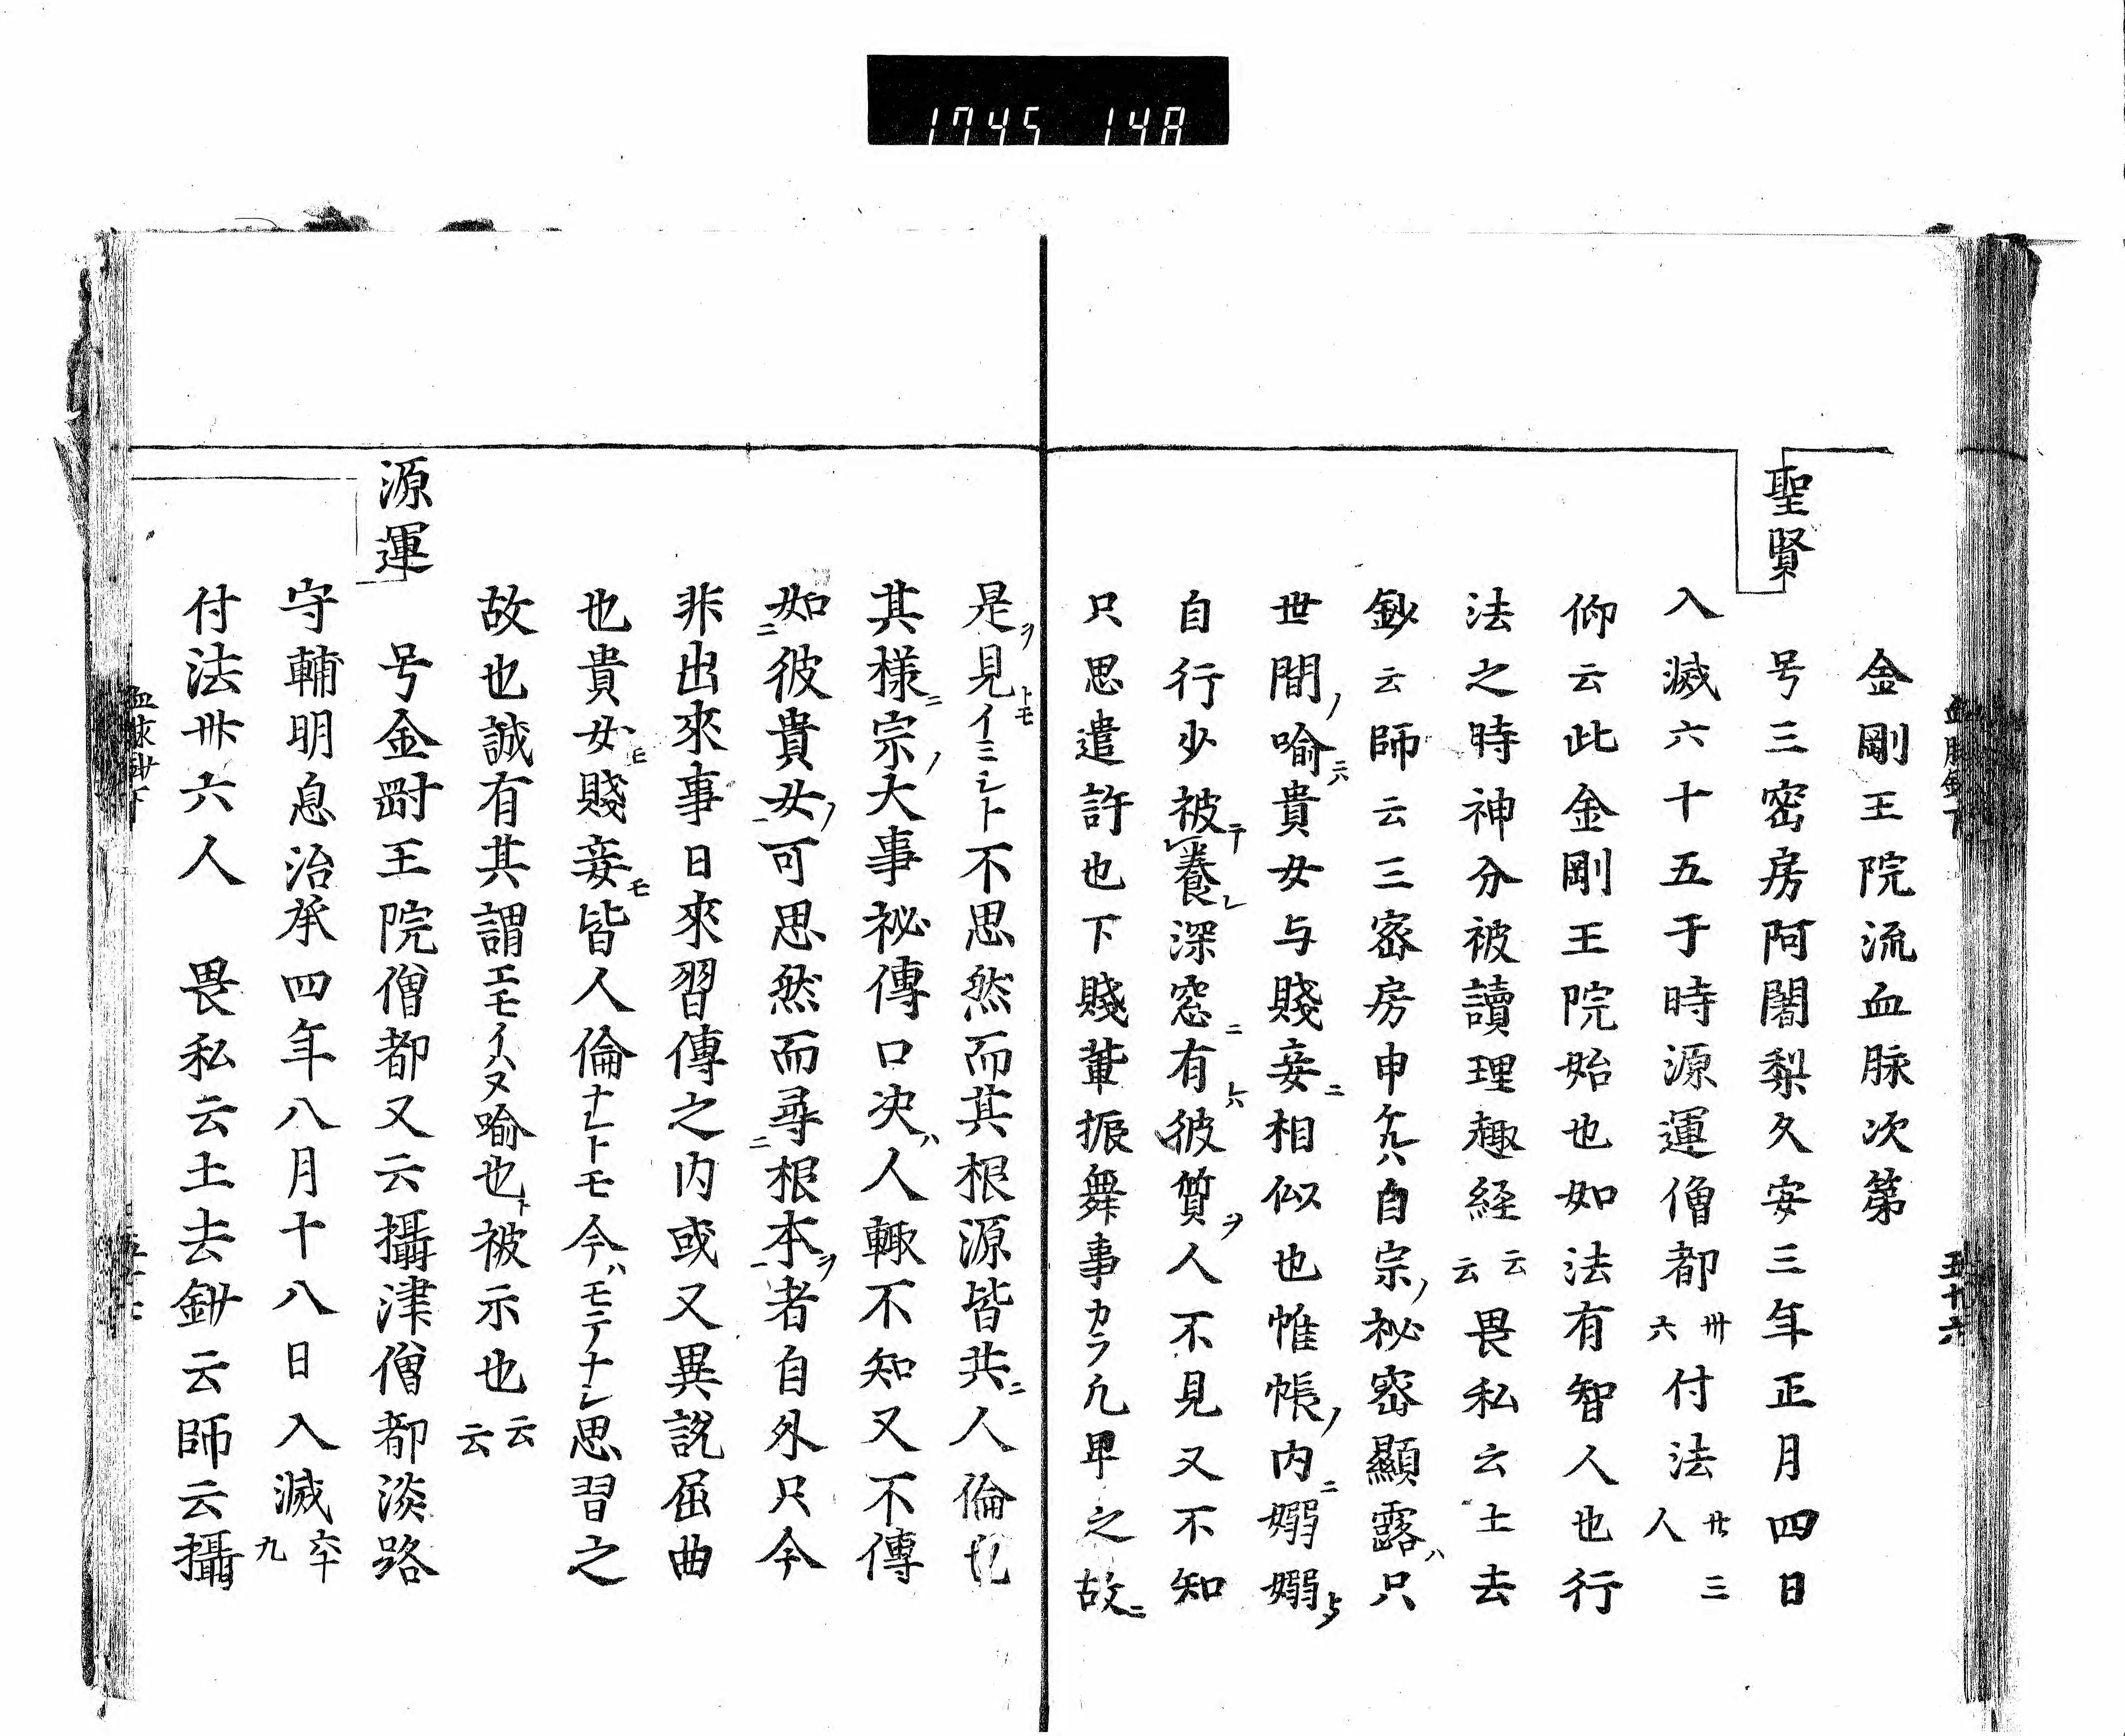 1745 14A
金剛王院流血脉次第
聖賢
号三密房阿闍梨久安三年正月四日
入滅六十五于時源運僧都卅六付法廿三人
仰云此金剛王院始也如法有智人也行
法之時神分被讀理趣経云云畏私云土去
鈔云師云三密房申ケルハ自宗ノ秘密顯露ハ只
世間ノ喻ニハ貴女与賤妾ニ相似也帷帳ノ内ニ嫋嫋ト
自行少被テ養レ深窓ニ有彼質ヲ人不見又不知
只思遣許也下賤輩振舞事カラ凡卑之故ニ
是ヲ見トモイミシト不思然而其根源皆共ニ人倫
其様ニ宗ノ大事祕傳口决ハ人輙不知又不傳
如彼貴女ノ可思然而尋根本ヲ者自外只今
非出來事日來習傳之内或又異說屈曲
也貴女モ賤妾モ皆人倫ナレトモ今ハモテナシ思習之
故也誠有其謂エモイハヌ喻也ト被示也云云
源運
号金剛王院僧都又云攝津僧都淡路
守輔明息治承四年八月十八日入滅六十九
付法卅六人 畏私云土去鈔云師云攝